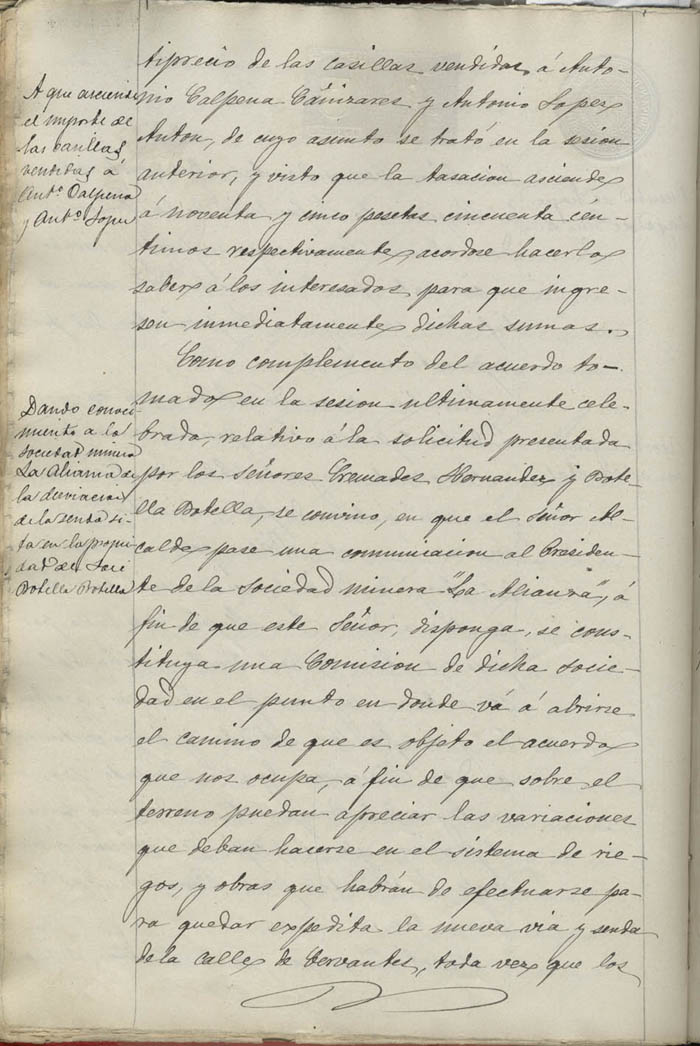 A que asciende
el importe de
las casillas
vendidas á
Antº Calpena
y Antº Lopez
tiprecio de las casillas vendidas á Anto-
nio Calpena Cañizares y Antonio Lopez
Anton, de cuyo asunto se trató en la sesion
anterior, y visto que la tasacion asciende
á noventa y cinco pesetas cincuenta cén-
timos respectivamente, acordose hacerlo
saber á los interesados para que ingre-
sen inmediatamente dichas sumas.
Dando conoci-
miento a la
sociedad minera
La Alianza de
la desviacion
de la senda si-
ta en la propie-
dad de José
Botella Botella
Como complemento del acuerdo to-
mado en la sesion ultimamente cele-
brada, relativo á la solicitud presentada
por los Señores Cremades Hernandez y Bote-
lla Botella, se convino, en que el Señor Al-
calde pase una comunicacion al Presiden-
te de la Sociedad minera "La Alianza", á
fin de que este Señor, disponga, se cons-
tituya una Comision de dicha Socie-
dad en el punto en donde vá á abrirse
el camino de que es objeto el acuerdo
que nos ocupa, á fin de que sobre el
terreno puedan apreciar las variaciones
que deban hacerse en el sistema de rie-
gos, y obras que habrán de efectuarse pa-
ra quedar expedita la nueva via y senda
de la calle de Cervantes, toda vez que los